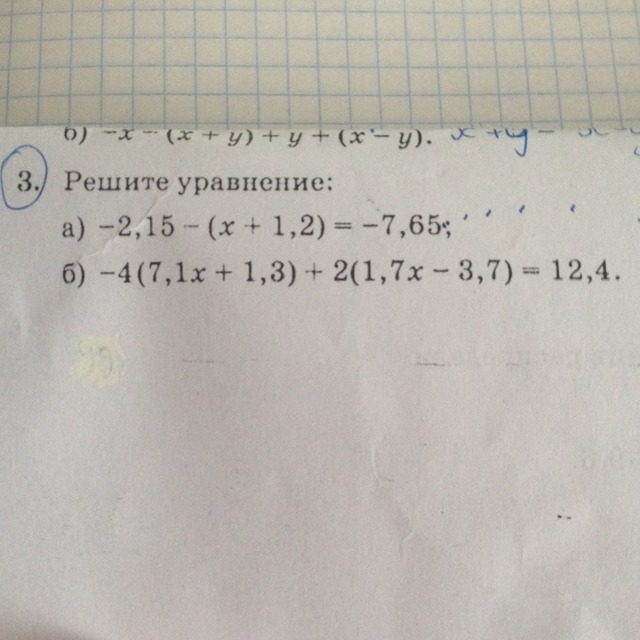 б) −x − (x + y) + y + (x − y).
3. Решите уравнение:
а) −2,15 − (x + 1,2) = −7,65;
б) −4(7,1x + 1,3) + 2(1,7x − 3,7) = 12,4.